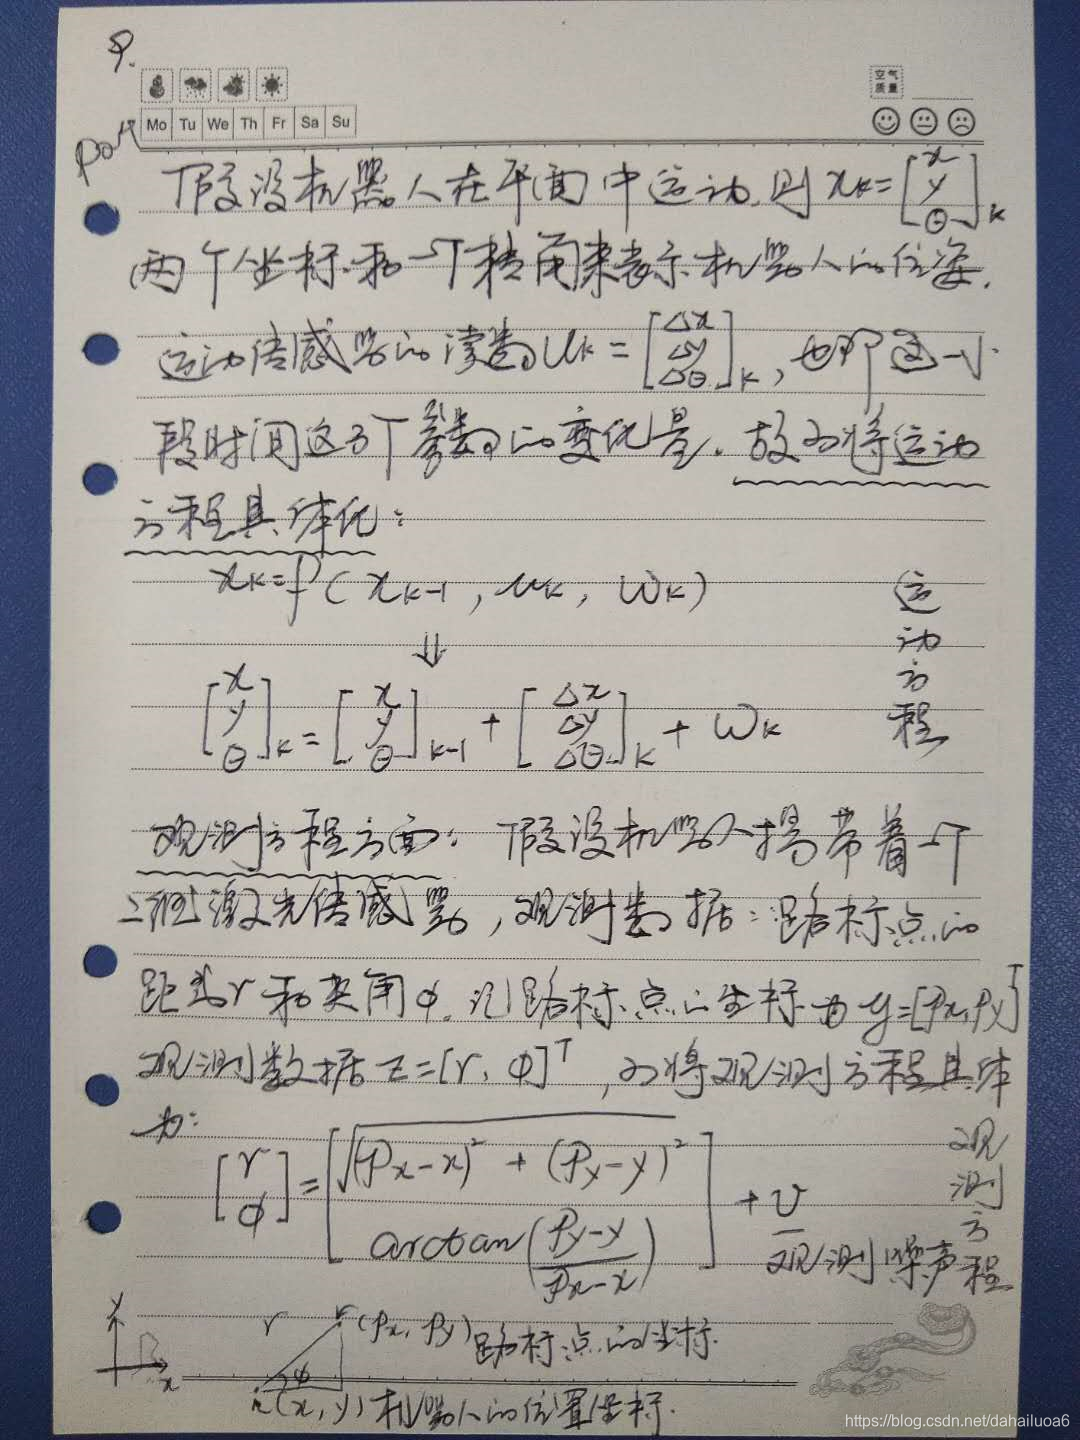 9.
Mo Tu We Th Fr Sa Su
空气
质量
假设机器人在平面中运动,则 xₖ=[x y θ]ₖ
两个坐标和一个转角来表示机器人的位姿.
运动传感器的读数uₖ=[Δx Δy Δθ]ₖ,也即这一小
段时间这三个参数的变化量.故可将运动
方程具体化:
xₖ=f(xₖ₋₁, uₖ, wₖ) 运动方程
⇓
[x y θ]ₖ = [x y θ]ₖ₋₁ + [Δx Δy Δθ]ₖ + wₖ
观测方程方面: 假设机器人携带着一个
二维激光传感器,观测数据:路标点的
距离r和夹角φ.记路标点的坐标为 y=[Px,Py]ᵀ
观测数据 z=[r, φ]ᵀ,可将观测方程具体
为:
[r φ] = [√((Px-x)²+(Py-y)²) arctan((Py-y)/(Px-x))] + v 观测方程
观测噪声
y
x
r
φ
(Px, Py)路标点的坐标.
(x, y)机器人的位置坐标.
https://blog.csdn.net/dahailuoa6